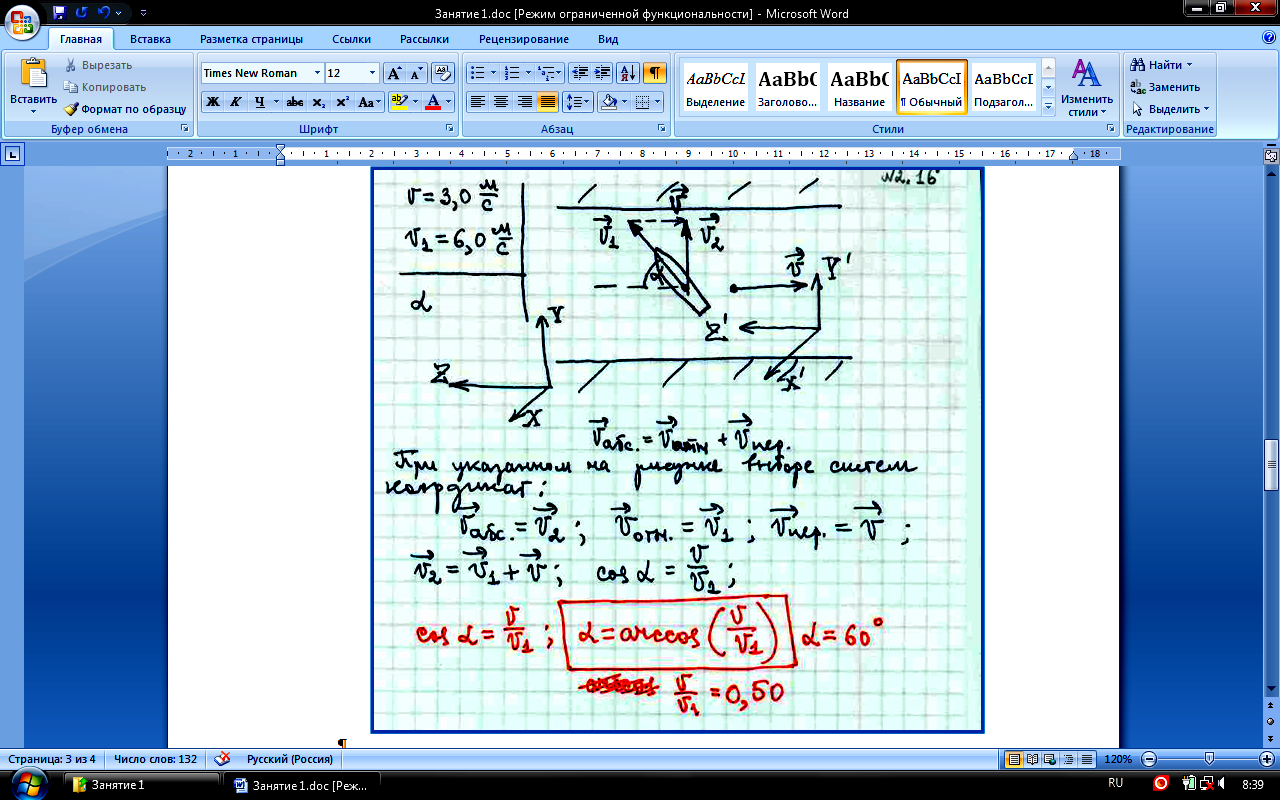 Занятие 1.doc [Режим ограниченной функциональности] - Microsoft Word
Главная Вставка Разметка страницы Ссылки Рассылки Рецензирование Вид
Вставить
Вырезать
Копировать
Формат по образцу
Буфер обмена
Times New Roman 12
Ж К Ч abc x₂ x² Aa
Шрифт
Абзац
AaBbCcI AaBbC AaBbC AaBbCcI AaBbCcI
Выделение Заголово... Название ¶ Обычный Подзагол...
Стили
Изменить стили
Найти
Заменить
Выделить
Редактирование
2 1 1 2 3 4 5 6 7 8 9 10 11 12 13 14 15 16 17 18
№2.16
v = 3,0 м/с
v₁ = 6,0 м/с
α
v⃗
v⃗₁ v⃗₂
α
v⃗ Y'
Z'
X'
Y
Z
X
v⃗абс. = v⃗отн + v⃗пер.
При указанном на рисунке выборе систем
координат:
v⃗абс. = v⃗₂ ; v⃗отн. = v⃗₁ ; v⃗пер. = v⃗ ;
v⃗₂ = v⃗₁ + v⃗ ; cos α = v/v₁ ;
cos α = v/v₁ ; α = arccos (v/v₁) α = 60°
v/v₁ = 0,50
¶
Страница: 3 из 4 Число слов: 132 Русский (Россия) 120%
Занятие 1 Занятие 1.doc [Реж... RU 8:39